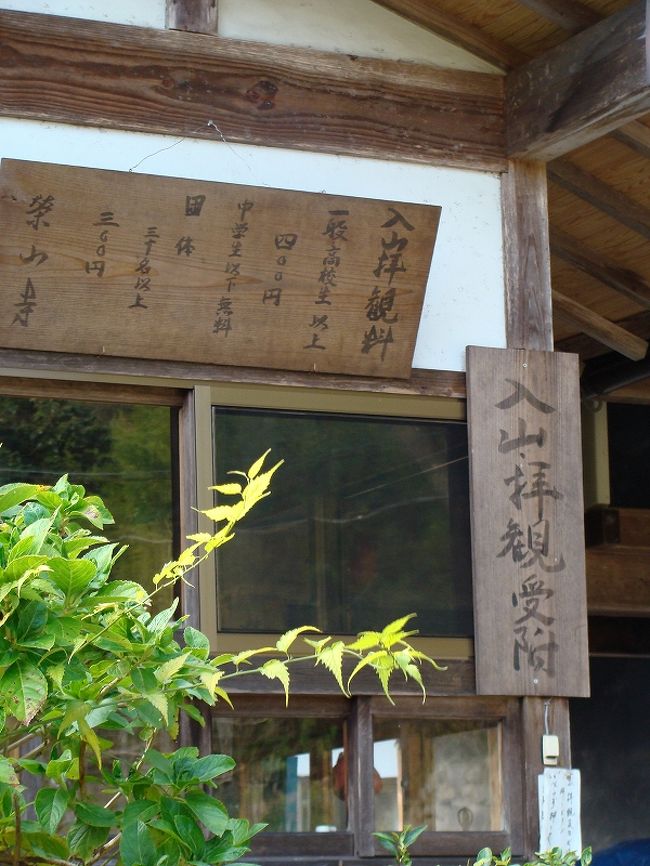 入山拝観料
一般・高校生以上
四〇〇円
中学生以下無料
団体
三十名以上
三〇〇円
榮山寺
入山拝観受附